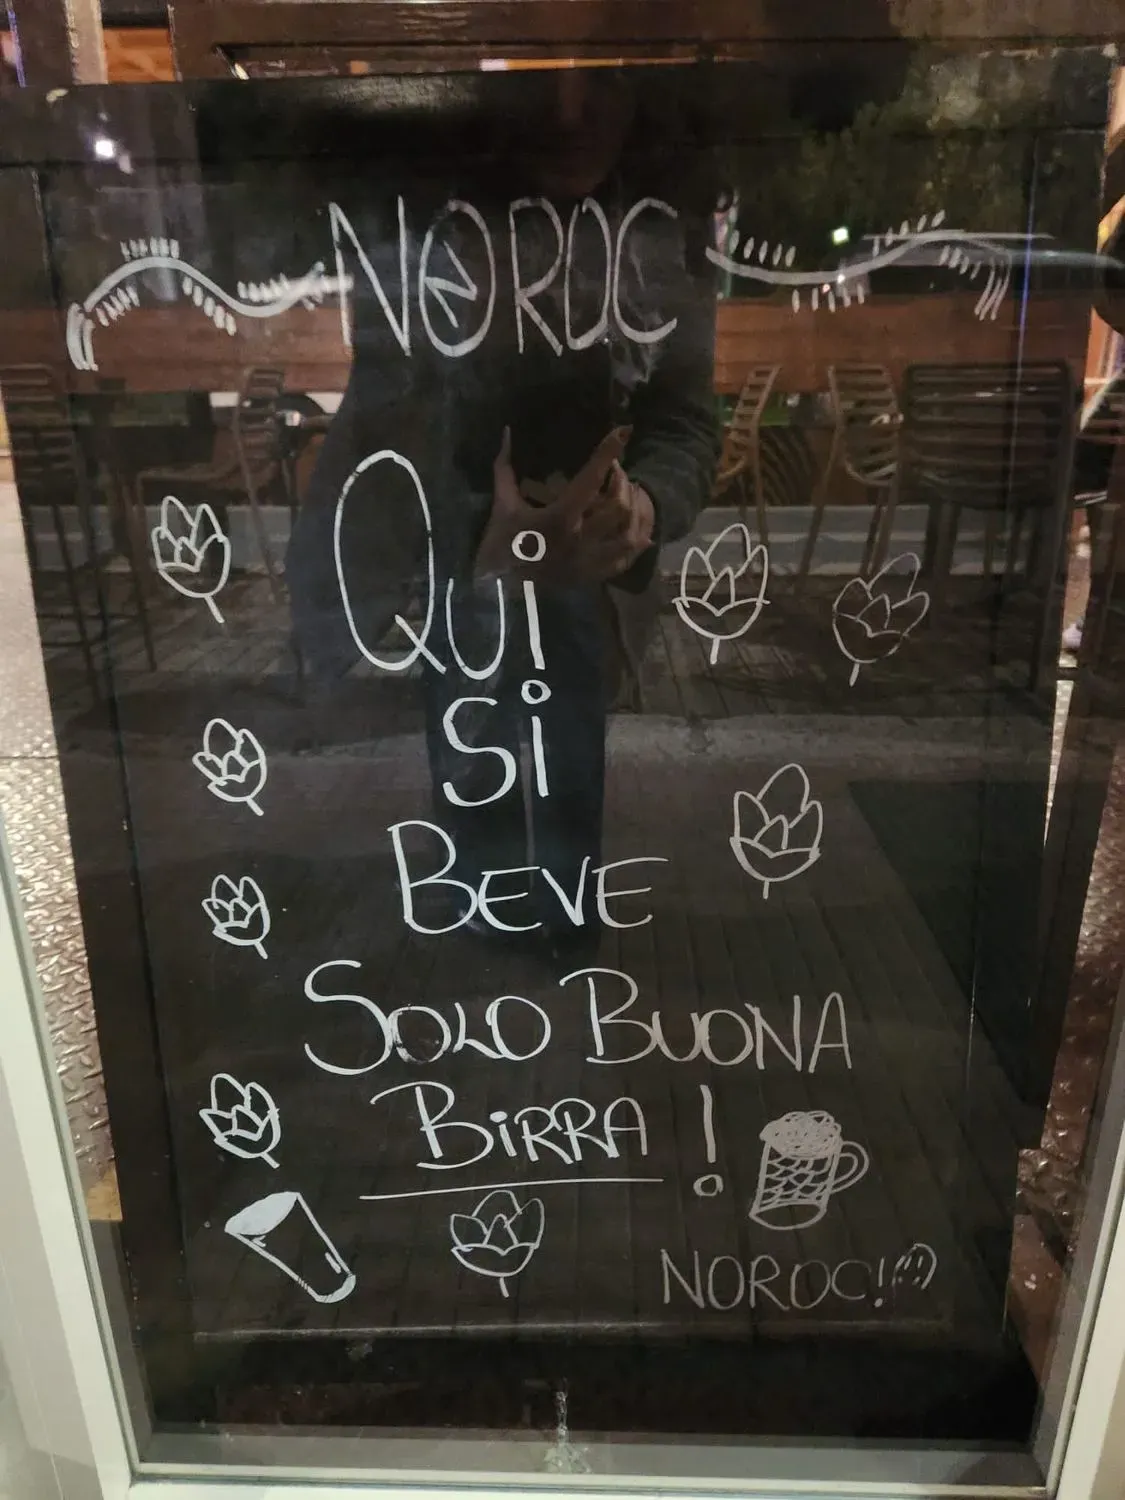 NOROC
Qui
Si
BEVE
SOLO BUONA
BiRRA !
NOROC!